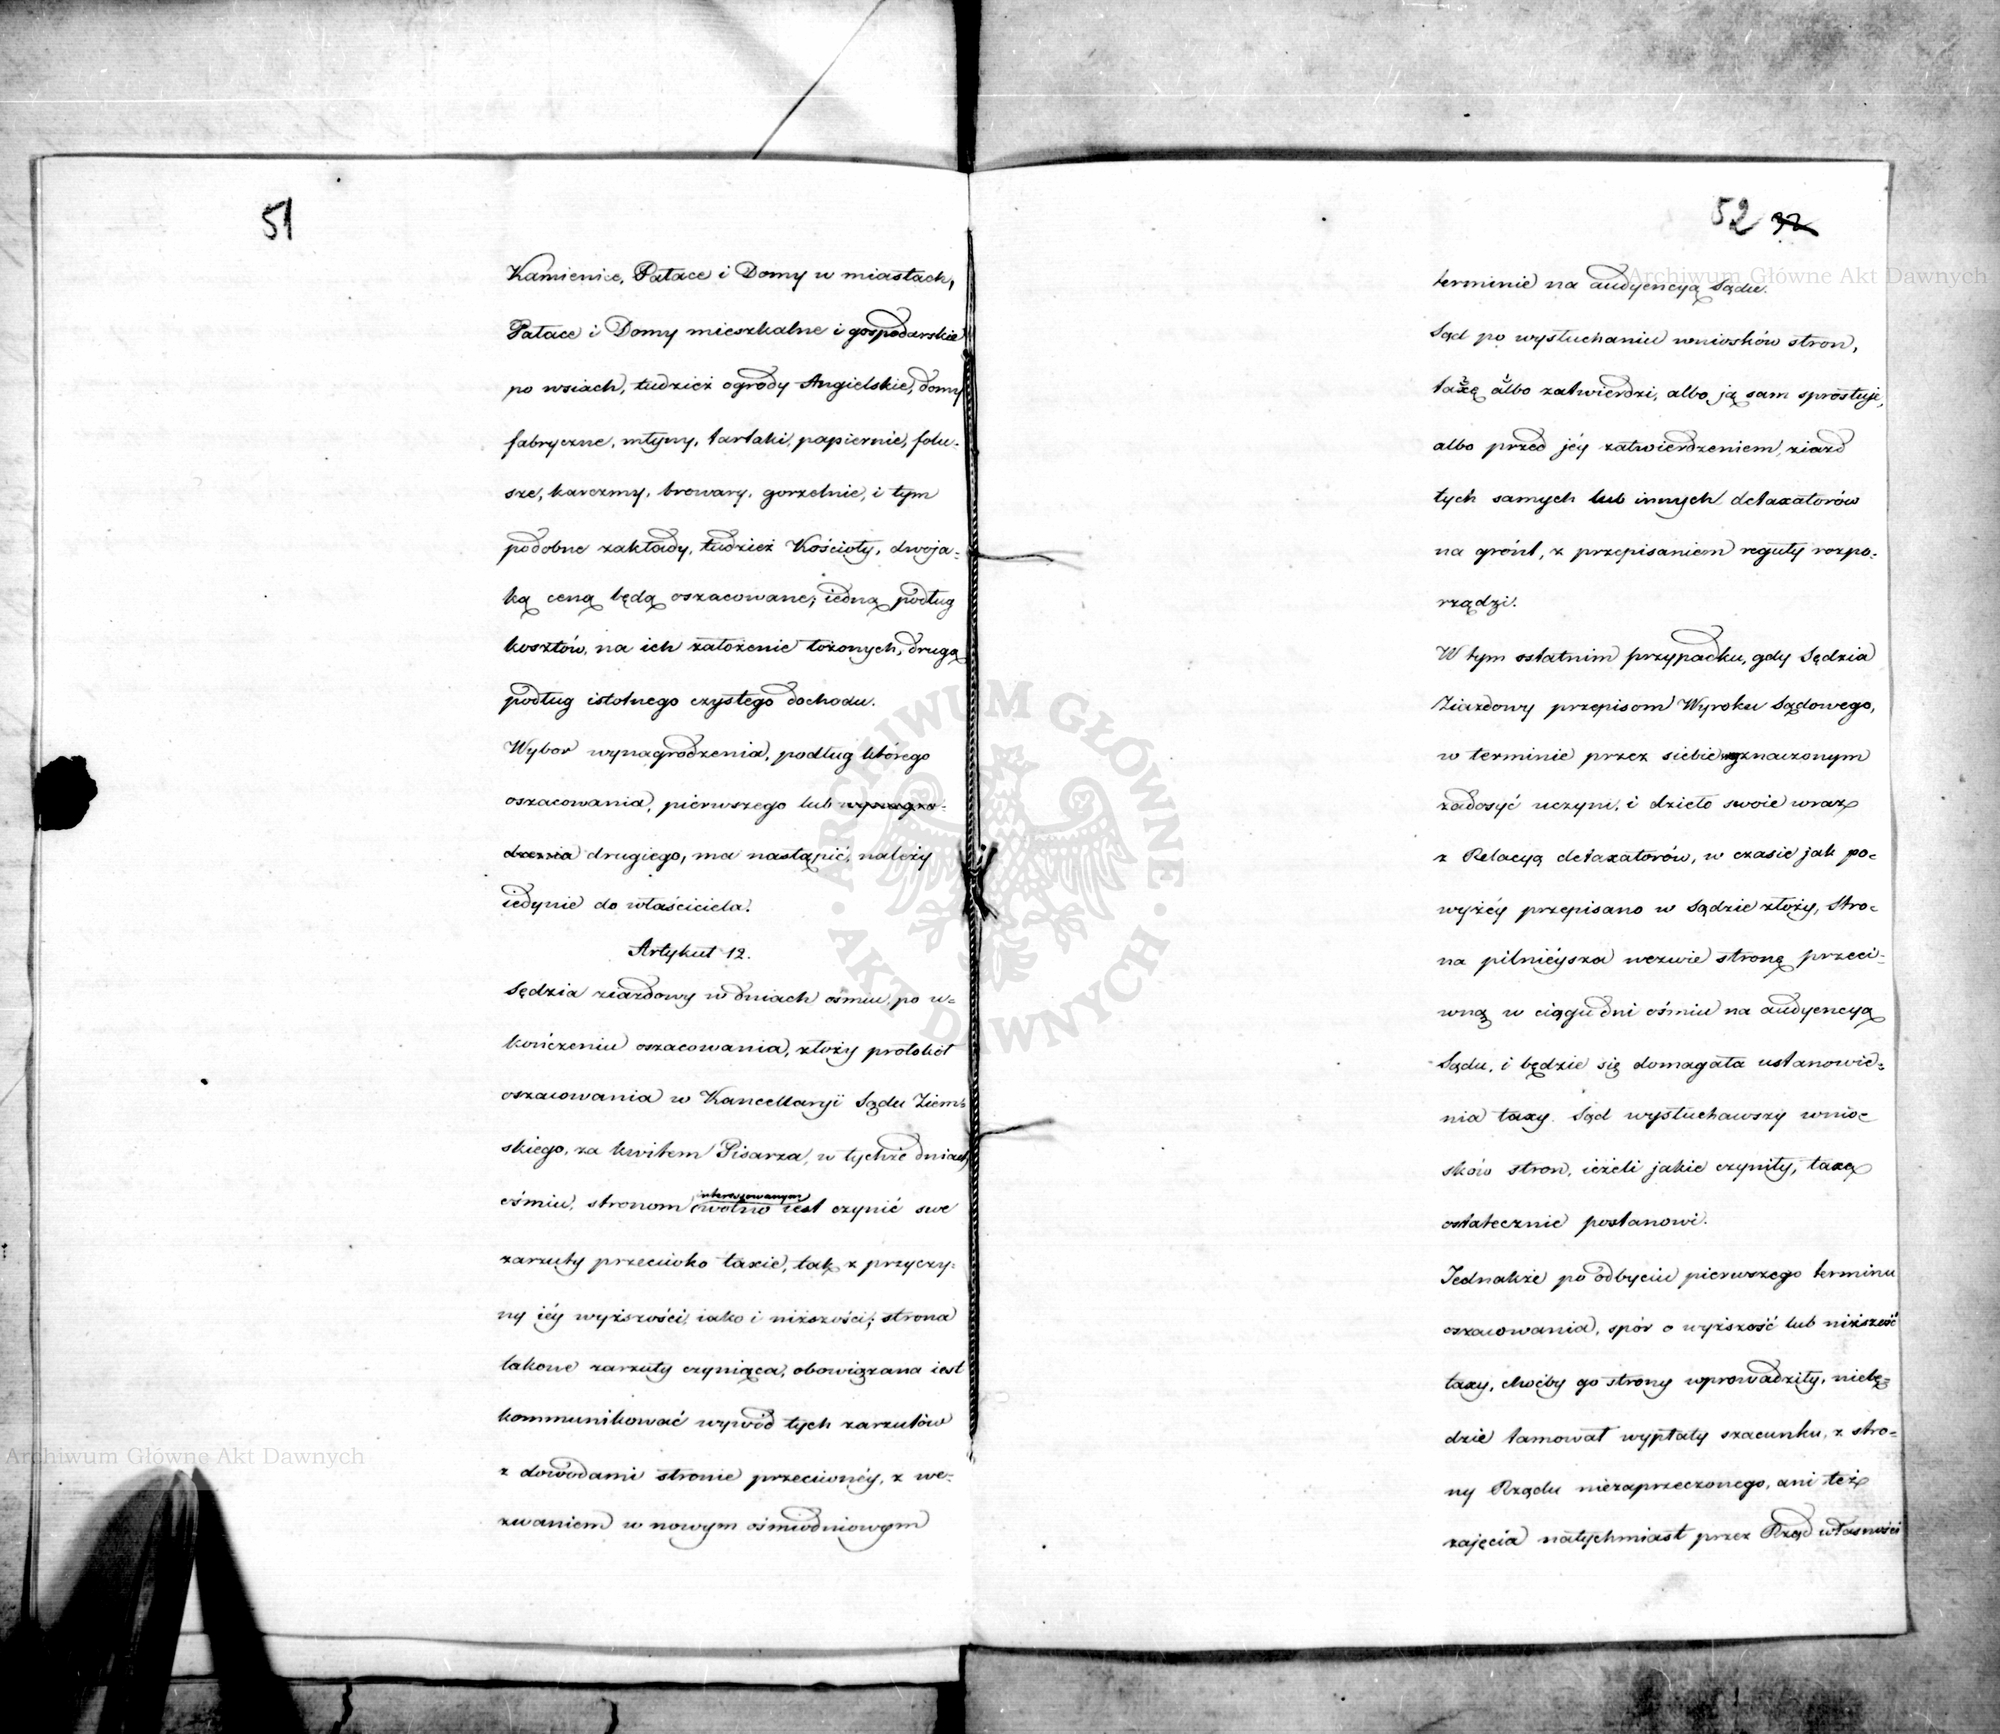 51
Kamienice, Pałace i Domy w miastach,
Pałace i Domy mieszkalne i gospodarskie
po wsiach, tudzież ogrody Angielskie, domy
fabryczne, młyny, tartaki, papiernie, folu-
sze, karczmy, browary, gorzelnie, i tym
podobne zakłady, tudzież Kościoły, dwoja-
ką ceną będą oszacowane; iedną podług
kosztów, na ich założenie łożonych, drugą
podług istotnego czystego dochodu.
Wybor wynagrodzenia, podług którego
oszacowania, pierwszego lub wynagro-
dzenia drugiego, ma nastąpić, należy
iedynie do właściciela.
Artykuł 12.
Sędzia ziazdowy w dniach ośmiu, po u-
kończeniu oszacowania, złoży protokół
oszacowania w Kancellaryi Sądu Ziem-
skiego, za kwitem Pisarza, w tychże dniach
ośmiu, stronom interessowanym wolno iest czynić swe
zarzuty przeciwko taxie, tak z przyczy-
ny iéy wyższości, iako i niższości; strona
takowe zarzuty czyniąca, obowiązana iest
kommunikować wywód tych zarzutów
z dowodami stronie przeciwnéy, z we-
zwaniem w nowym ośmiodniowym
52 32
terminie na audyencyą Sądu.
Sąd po wysłuchaniu wniosków stron,
taxę albo zatwierdzi, albo ją sam sprostuje,
albo przed jéy zatwierdzeniem, ziazd
tych samych lub innych detaxatorów
na grónt, z przepisaniem reguły rozpo-
rządzi.
W tym ostatnim przypadku, gdy Sędzia
Ziazdowy przepisom Wyroku Sądowego,
w terminie przez siebie oznaczonym
zadosyć uczyni, i dzieło swoie wraz
z Relacyą detaxatorów, w czasie jak po-
wyżéy przepisano w Sądzie złoży, stro-
na pilniéysza wezwie stronę przeci-
wną w ciągu dni ośmiu na audyencyą
Sądu, i będzie się domagała ustanowie-
nia taxy. Sąd wysłuchawszy wnio-
sków stron, ieżeli jakie czyniły, taxę
ostatecznie postanowi.
Jednakże po odbyciu pierwszego terminu
oszacowania, spór o wyższość lub niższość
taxy, choćby go strony wprowadziły, niebę-
dzie tamował wypłaty szacunku, z stro-
ny Rządu niezaprzeczonego, ani też
zajęcia natychmiast przez Rząd własności
Archiwum Główne Akt Dawnych
Archiwum Główne Akt Dawnych
ARCHIWUM GŁÓWNE
AKT DAWNYCH